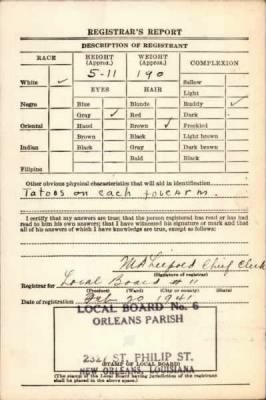 REGISTRAR'S REPORT
DESCRIPTION OF REGISTRANT
RACE HEIGHT (Approx.) WEIGHT (Approx.) COMPLEXION
5-11 190
White ✓ Sallow
EYES HAIR Light
Negro Blue Blonde Ruddy ✓
Gray ✓ Red Dark
Oriental Hazel Brown ✓ Freckled
Brown Black Light brown
Indian Black Gray Dark brown
Bald Black
Filipino
Other obvious physical characteristics that will aid in identification
Tatoos on each forearm.
I certify that my answers are true; that the person registered has read or has had
read to him his own answers; that I have witnessed his signature or mark and that
all of his answers of which I have knowledge are true, except as follows:
Chief Clerk
(Signature of registrar)
Registrar for Local Board # 11
(Precinct) (Ward) (City or county) (State)
Date of registration Feb 20 1941
LOCAL BOARD No. 6
ORLEANS PARISH
ST. PHILIP ST.
(STAMP OF LOCAL BOARD)
NEW ORLEANS, LOUISIANA
(The stamp of the Local Board having jurisdiction of the registrant
shall be placed in the above space.)